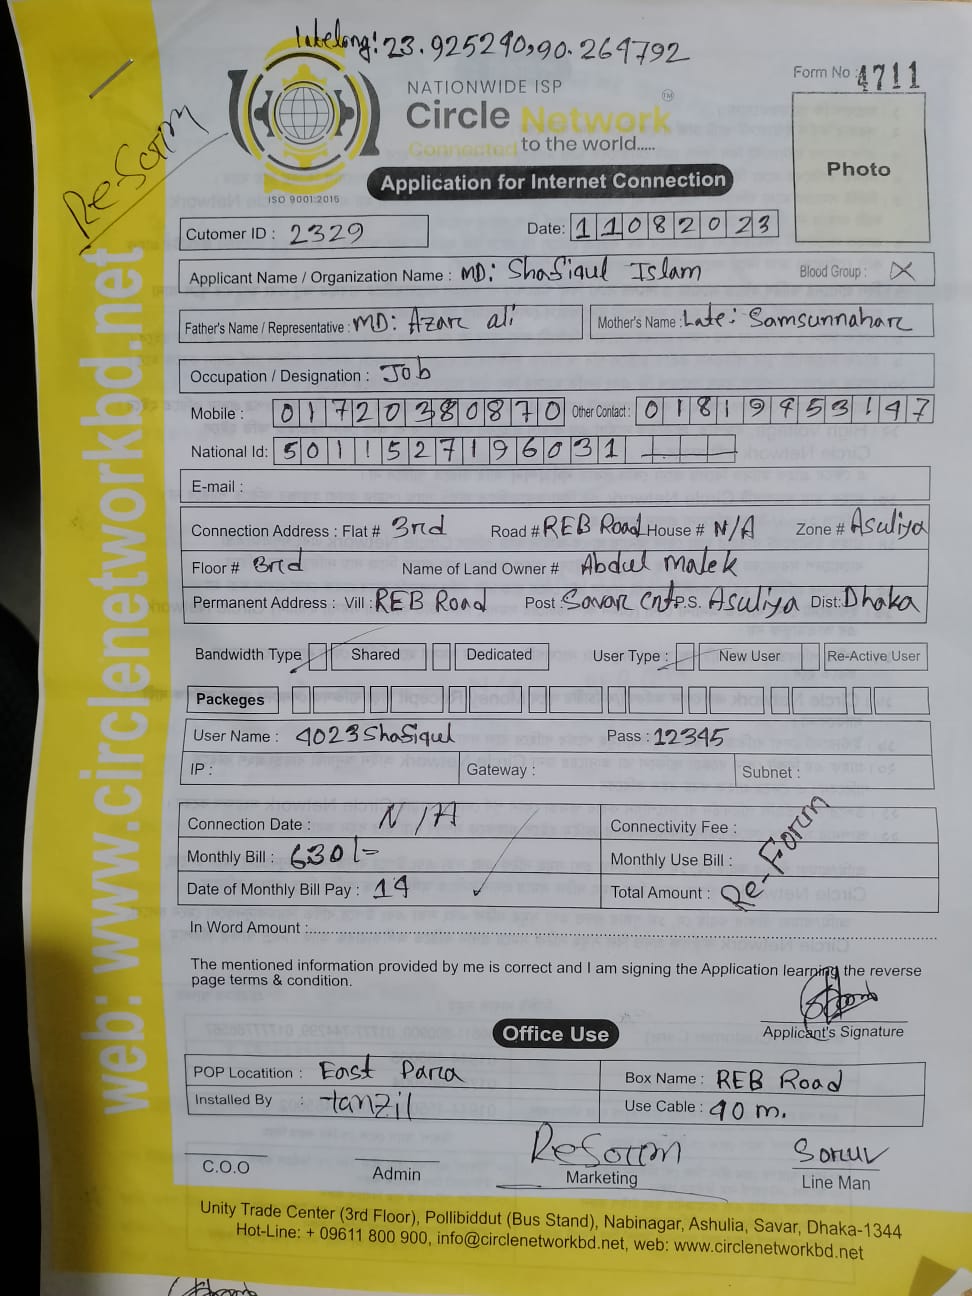 latelong: 23.925290,90.264792
NATIONWIDE ISP
Circle Network TM
Connected to the world.....
ISO 9001:2015
Form No : 4711
Photo
ReForm
Application for Internet Connection
Cutomer ID : 2329
Date: 11082023
Applicant Name / Organization Name : MD: Shafiqul Islam
Blood Group : X
Father's Name / Representative : MD: Azar ali
Mother's Name : Late: Samsunnahar
Occupation / Designation : Job
Mobile : 01720380870 Other Contact : 01819953147
National Id: 5011527196031
E-mail :
Connection Address : Flat # 3rd Road # REB Road House # N/A Zone # Asuliya
Floor # 3rd Name of Land Owner # Abdul Malek
Permanent Address : Vill : REB Road Post : Savar Cnt P.S. Asuliya Dist: Dhaka
Bandwidth Type Shared Dedicated User Type : New User Re-Active User
Packeges
User Name : 4023Shafiqul Pass : 12345
IP : Gateway : Subnet :
Connection Date : N/A
Connectivity Fee :
Monthly Bill : 630/=
Monthly Use Bill :
Date of Monthly Bill Pay : 14
Total Amount :
Re-Form
In Word Amount :
The mentioned information provided by me is correct and I am signing the Application learning the reverse
page terms & condition.
Applicant's Signature
Office Use
POP Locatition : East Para
Box Name : REB Road
Installed By : tanzil
Use Cable : 40 m.
C.O.O
Admin
ReForm
Marketing
Sorur
Line Man
Unity Trade Center (3rd Floor), Pollibiddut (Bus Stand), Nabinagar, Ashulia, Savar, Dhaka-1344
Hot-Line: + 09611 800 900, info@circlenetworkbd.net, web: www.circlenetworkbd.net
web: www.circlenetworkbd.net